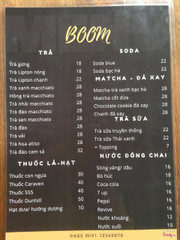 BOOM
TRÀ
Trà gừng 18
Trà Lipton nóng 18
Trà Lipton chanh 22
Trà xanh macchiato 28
Trà nhài macchiato 28
Trà đào macchiato 28
Trà sen macchiato 28
Trà đào 28
Trà vải 28
Trà hoa atiso 28
Trà đào cam sả 28
THUỐC LÁ-HẠT
Thuốc con ngựa 30
Thuốc Caraven 30
Thuốc 555 40
Thuốc Dunhill 30
Hạt dưa/ hướng dương 10
SODA
Soda blue 22
Soda bạc hà 22
MATCHA - ĐÁ XAY
Matcha trà xanh bạc hà 28
Matcha cốt dừa 28
Chocolate cookie đá xay 28
Chanh đá xay 28
TRÀ SỮA
Trà sữa truyền thống 22
Trà sữa Thái xanh 22
+ Topping 7
NƯỚC ĐÓNG CHAI
Sting vàng/ dâu 16
Bò húc 18
Coca cola 16
7 up 16
Pepsi 16
Revive 16
Nước khoáng 12
Nước suối 10
PASS WIFI 12345678